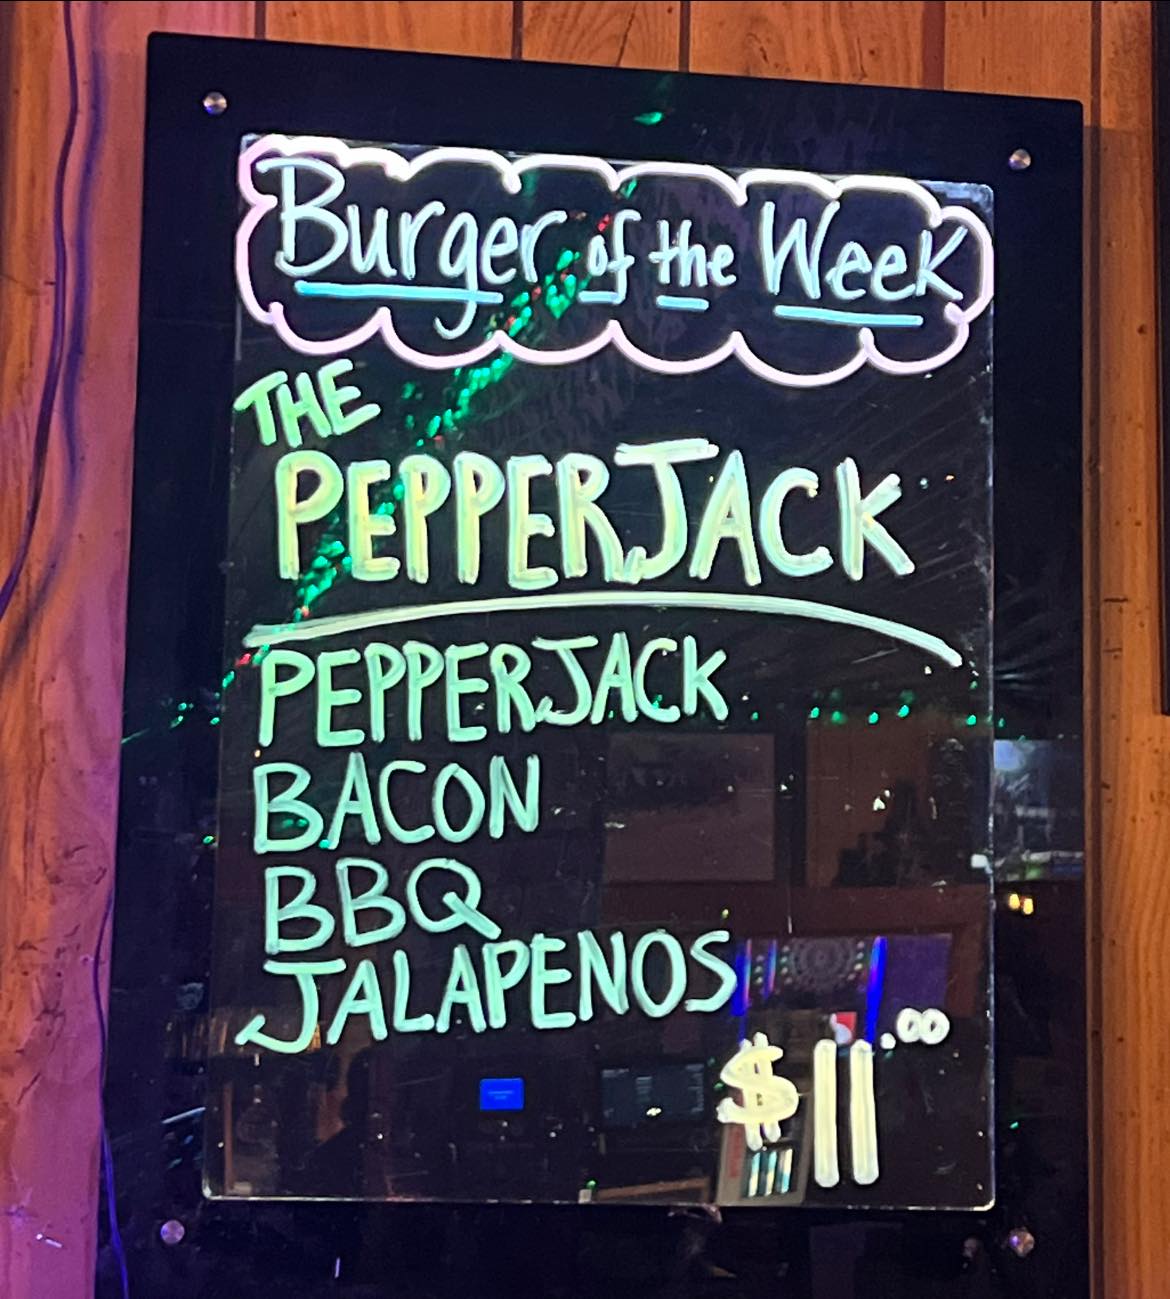 Burger of the Week
THE
PEPPERJACK
PEPPERJACK
BACON
BBQ
JALAPENOS
$11.00